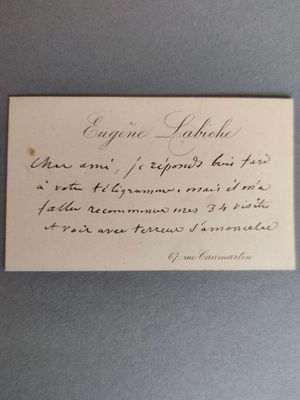 Eugène Labiche
Cher ami, je réponds bien tard
à votre télégramme. mais il m'a
fallu recommencer mes 34 visites
et voir avec terreur s'amonceler
67, rue Caumartin